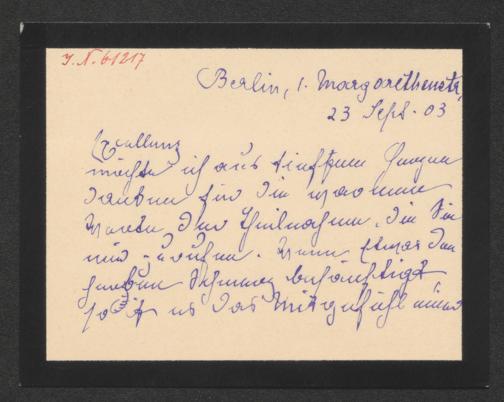 J.N. 61217
Berlin, 1. Margarethenstr.
23 Sept. 03
Excellenz
möchte ich aus tiefstem Herzen
danken für die warmen
Worte der Theilnahme, die Sie
mir zurufen. Wenn etwas den
herben Schmerz besänftigt,
so ist es das Mitgefühl